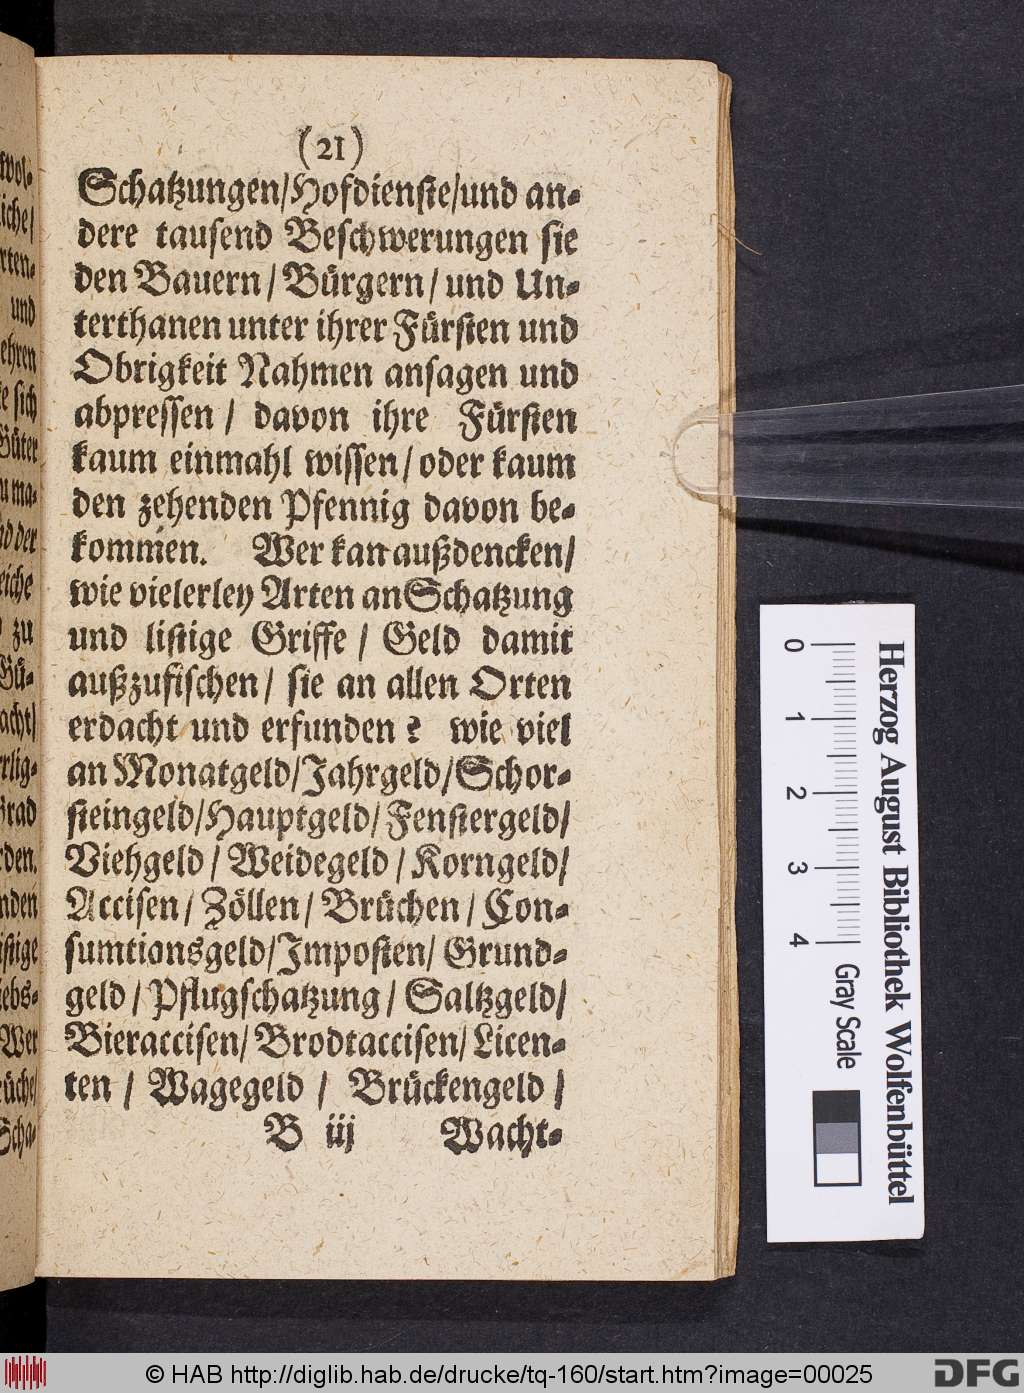 (21)
Schatzungen/Hofdienste/und an-
dere tausend Beschwerungen sie
den Bauern / Bürgern / und Un-
terthanen unter ihrer Fürsten und
Obrigkeit Nahmen ansagen und
abpressen / davon ihre Fürsten
kaum einmahl wissen / oder kaum
den zehenden Pfennig davon be-
kommen. Wer kan außdencken/
wie vielerley Arten an Schatzung
und listige Griffe / Geld damit
außzufischen / sie an allen Orten
erdacht und erfunden? wie viel
an Monatgeld/Jahrgeld/Schor-
steingeld/Hauptgeld/Fenstergeld/
Viehgeld / Weidegeld / Korngeld/
Accisen / Zöllen / Brüchen / Con-
sumtionsgeld/Imposten/ Grund-
geld / Pflugschatzung / Saltzgeld/
Bieraccisen/ Brodtaccisen/ Licen-
ten / Wagegeld / Brückengeld /
B iij Wacht-
wol-
iche/
rten-
und
ehren
ke sich
Güter
zu ma-
nd der
eiche
zu
Gü-
acht/
rrlig-
Grad
rden.
nden
istige
iebs-
Wer
rüche/
Scha-
0 1 2 3 4
Herzog August Bibliothek Wolfenbüttel
Gray Scale
© HAB http://diglib.hab.de/drucke/tq-160/start.htm?image=00025
DFG